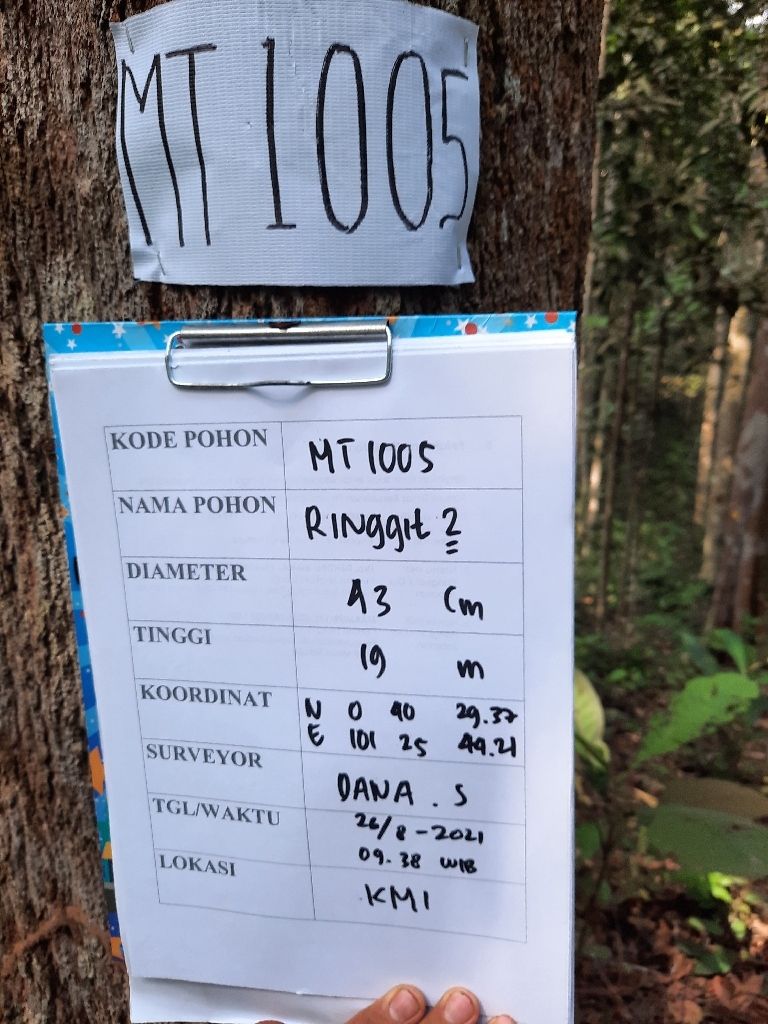 MT 1005
KODE POHON MT 1005
NAMA POHON RINggit 2
DIAMETER 43 Cm
TINGGI 19 m
KOORDINAT N 0 40 29.37
E 101 25 44.21
SURVEYOR DANA . S
TGL/WAKTU 26/8-2021
09.38 WIB
LOKASI KMI